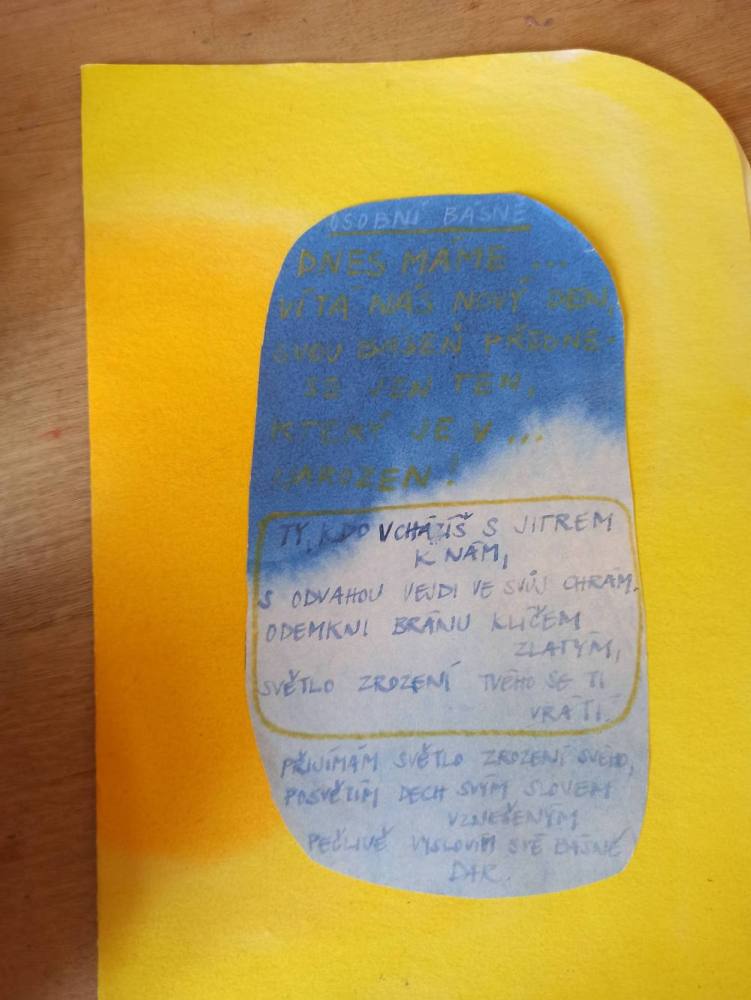 OSOBNÍ BÁSNĚ
DNES MÁME ...
VÍTÁ NÁS NOVÝ DEN,
SVOU BÁSEŇ PŘEDNE-
SE JEN TEN,
KTERÝ JE V ...
NAROZEN!
TY, KDO VCHÁZÍŠ S JITREM
K NÁM,
S ODVAHOU VEJDI VE SVŮJ CHRÁM.
ODEMKNI BRÁNU KLÍČEM
ZLATÝM,
SVĚTLO ZROZENÍ TVÉHO SE TI
VRÁTÍ.
PŘIJÍMÁM SVĚTLO ZROZENÍ SVÉHO,
POSVĚTÍM DECH SVÝM SLOVEM
VZNEŠENÝM
PEČLIVĚ VYSLOVÍM SVÉ BÁSNĚ
DAR.